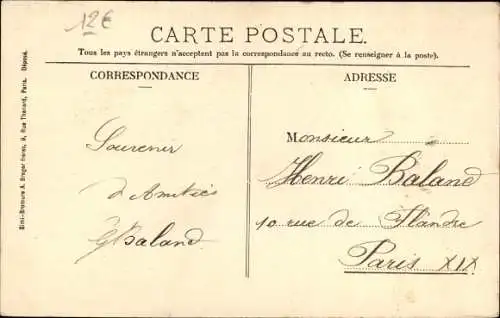 12€
CARTE POSTALE.
Tous les pays étrangers n'acceptent pas la correspondance au recto. (Se renseigner à la poste).
CORRESPONDANCE
ADRESSE
Souvenir
d'Amitiés
GBaland
Monsieur
Henri Baland
10 rue de Flandre
Paris XIX
Simi-Bromure A. Breger frères, 9, Rue Thénard, Paris. Déposé.